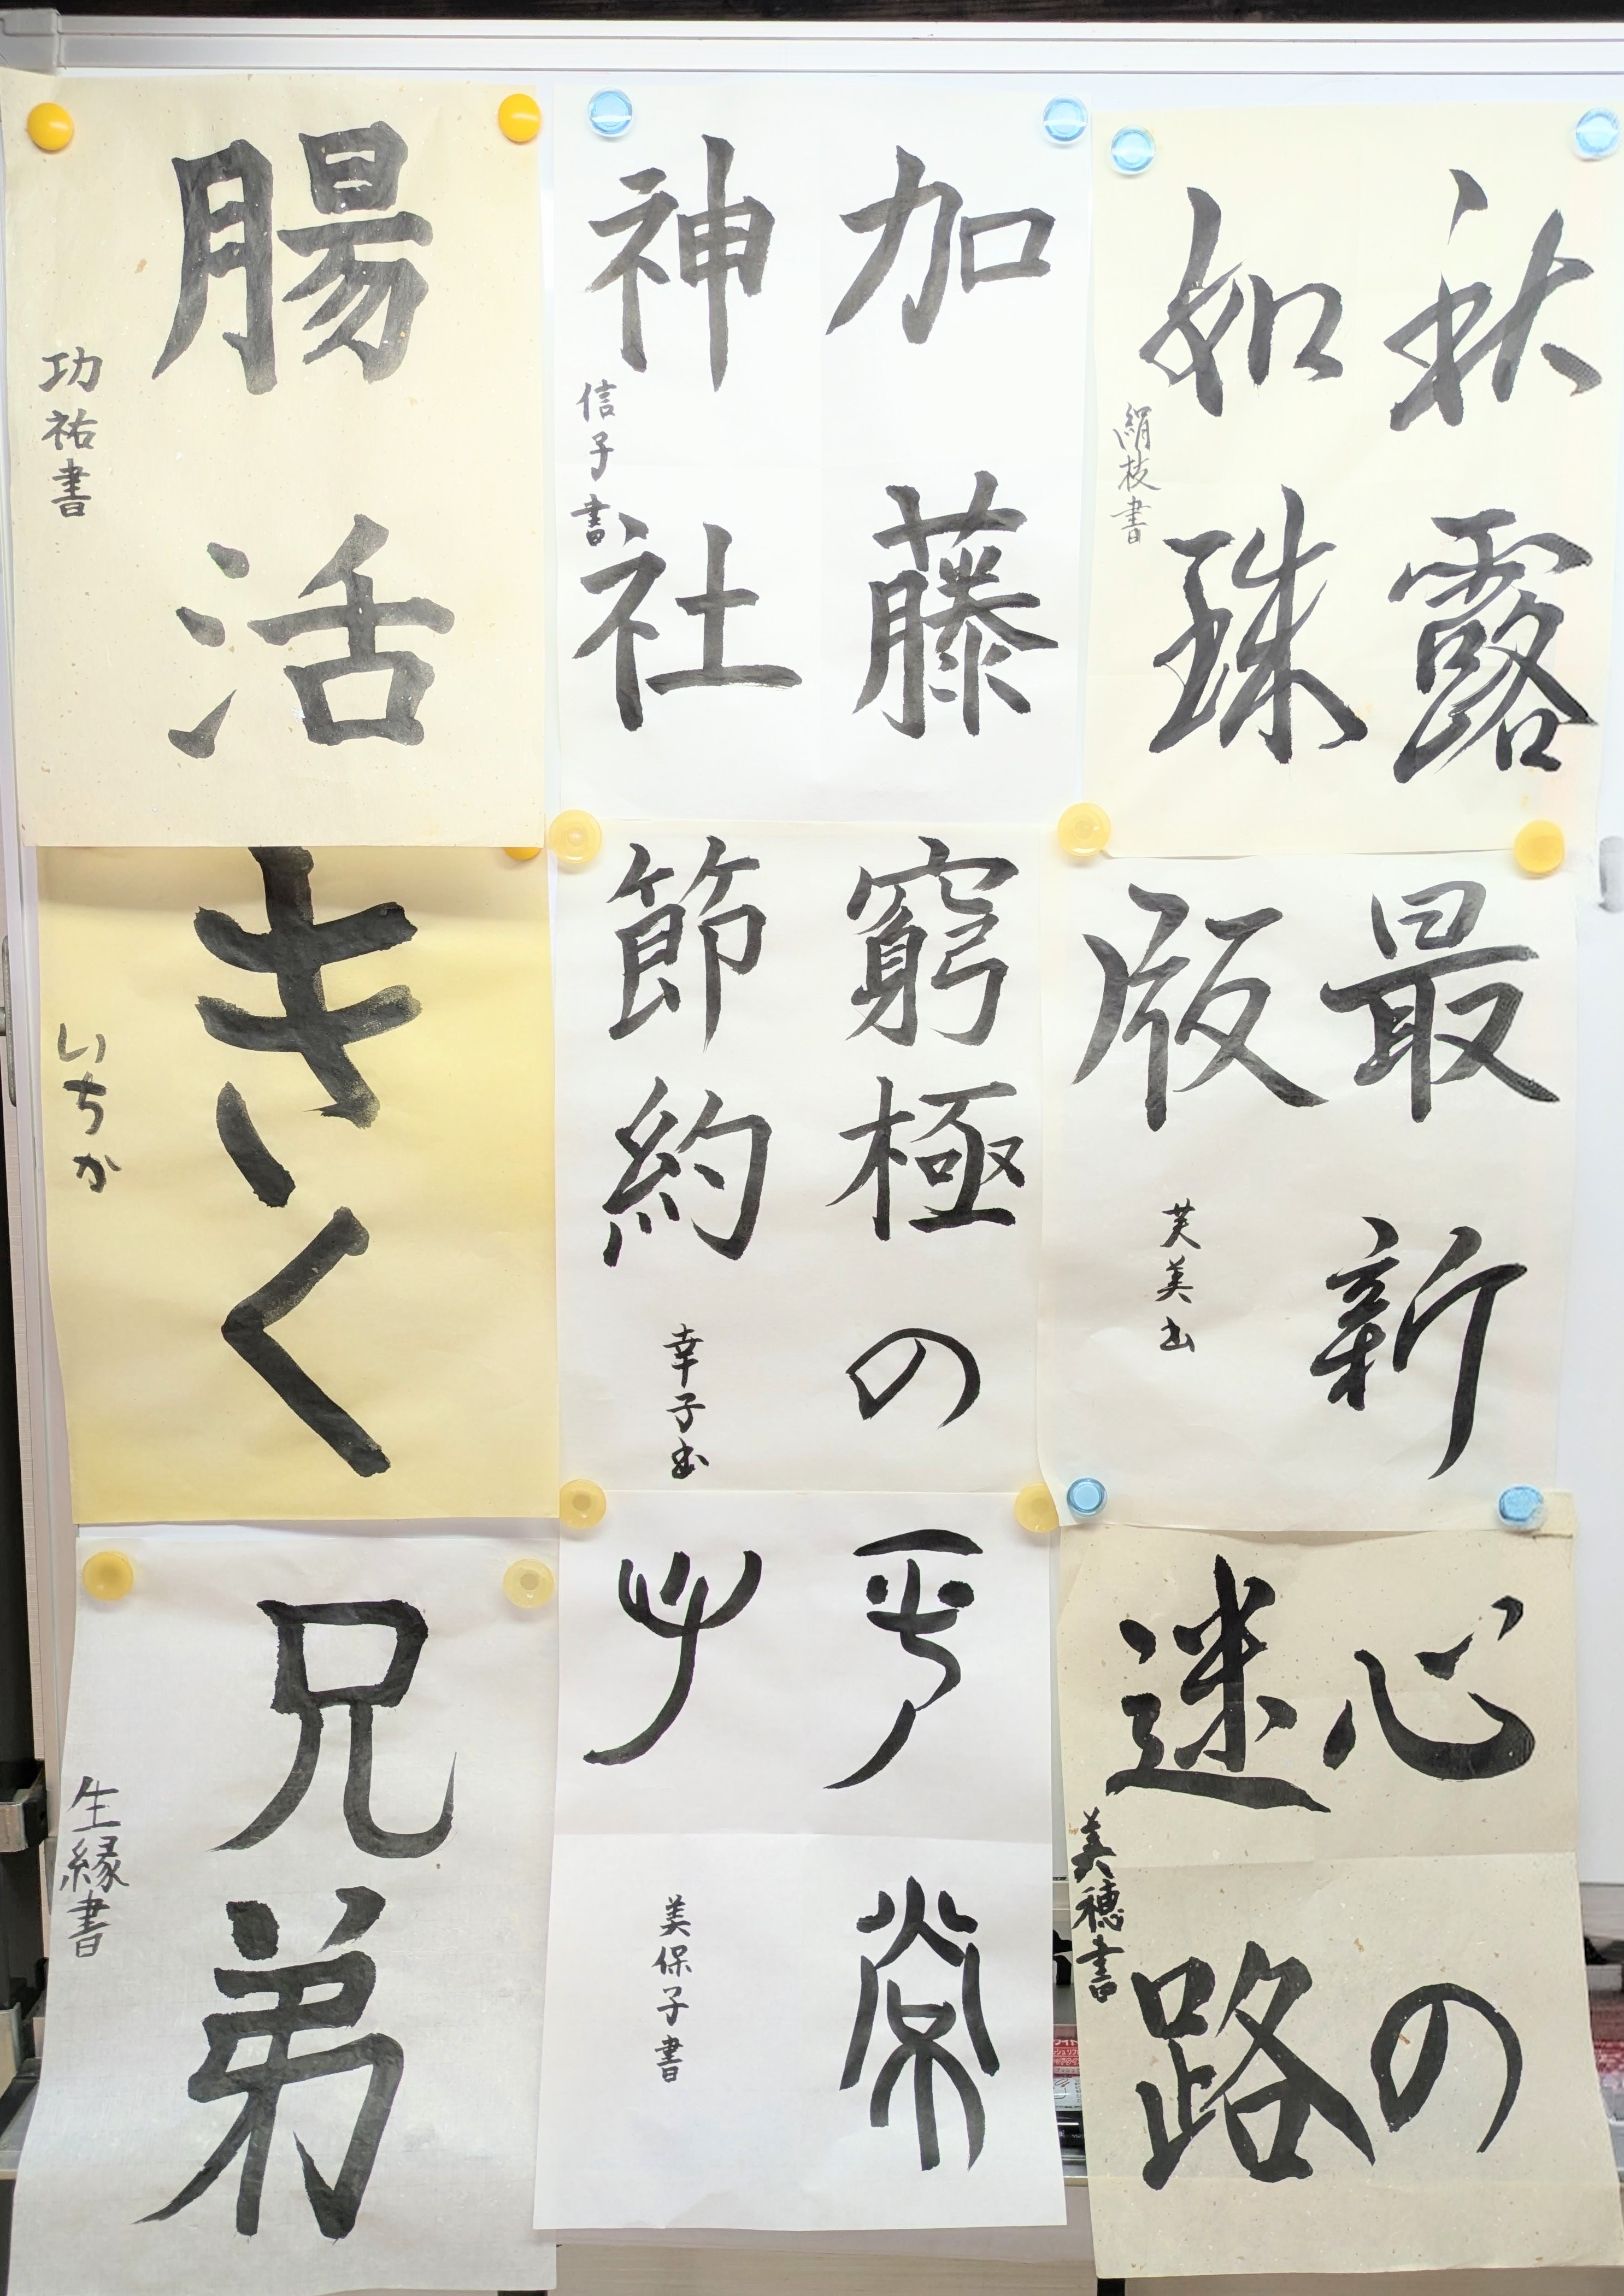 秋露
如珠
絹枝書
加藤
神社
信子書
腸活
功祐書
最新
版
芙美出
窮極の
節約
幸子書
きく
いちか
心の
迷路
美穂書
平常
心
美保子書
兄弟
生縁書